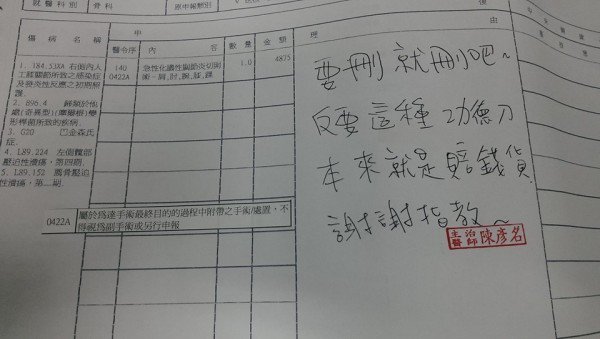 就醫科別 骨科 原申報類別
申 由
傷病名稱 醫令序 內容 數量 金額 理
1. T84.53XA 右側內人
工膝關節所致之感染症
及發炎性反應之初期照
護.
2. B96.4 歸類於他
處(奇異型)(摩根根)變
形桿菌所致的疾病.
3. G20 巴金森氏
症.
4. L89.224 左側髖部
壓迫性潰瘍，第四期.
5. L89.152 薦骨壓迫
性潰瘍，第二期.
140
0422A
急性化膿性關節炎切開
術－肩,肘,腕,膝,踝
1.0 4875
0422A 屬於為達手術最終目的的過程中附帶之手術/處置，不
得視為副手術或另行申報
要刪就刪吧~
反正這種功德刀
本來就是賠錢貨
謝謝指教~
主治醫師 陳彥名